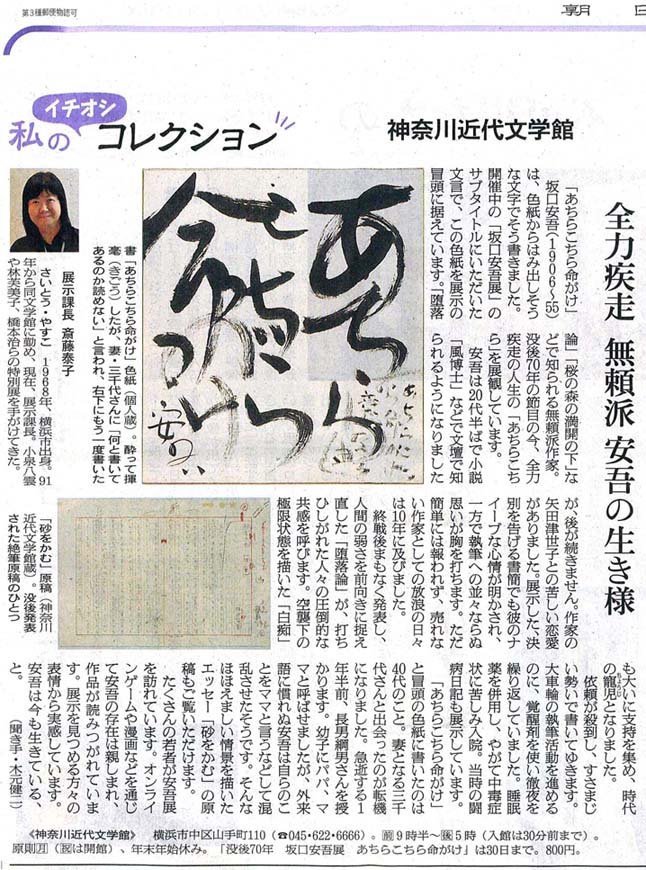 第3種郵便物認可
朝 日
イチオシ
私の コレクション
神奈川近代文学館
全力疾走 無頼派 安吾の生き様
「あちらこちら命がけ」
坂口安吾(1906~55)
は、色紙からはみ出しそう
な文字でそう書きました。
開催中の「坂口安吾展」の
サブタイトルにいただいた
文言で、この色紙を展示の
冒頭に据えています。「堕落
論」「桜の森の満開の下」な
どで知られる無頼派作家。
没後70年の節目の今、全力
疾走の人生の「あちらこち
ら」を展観しています。
安吾は20代半ばで小説
「風博士」などで文壇で知
られるようになりました
が、後が続きません。作家の
矢田津世子との苦しい恋愛
がありました。展示した、決
別を告げる書簡でも彼のナ
イーブな心情が明かされ、
一方で執筆への並々ならぬ
思いが胸を打ちます。ただ
簡単には報われず、売れな
い作家としての放浪の日々
は10年に及びました。
終戦後まもなく発表し、
人間の弱さを前向きに捉え
直した「堕落論」が、打ち
ひしがれた人々の圧倒的な
共感を呼びます。空襲下の
極限状態を描いた「白痴」
も大いに支持を集め、時代
の寵児となりました。
依頼が殺到し、すさまじ
い勢いで書いてゆきます。
大車輪の執筆活動を進める
のに、覚醒剤を使い徹夜を
繰り返していました。睡眠
薬を併用し、やがて中毒症
状に苦しみ入院。当時の闘
病日記も展示しています。
「あちらこちら命がけ」
と冒頭の色紙に書いたのは
40代のこと。妻となる三千
代さんと出会ったのが転機
になりました。急逝する1
年半前、長男綱男さんを授
かります。幼子にパパ、マ
マと呼ばせましたが、外来
語に慣れぬ安吾は自らのこ
とをママと言うなどして混
乱させたそうです。そんな
ほほえましい情景を描いた
エッセー「砂をかむ」の原
稿もご覧いただけます。
たくさんの若者が安吾展
を訪れています。オンライ
ンゲームや漫画などを通じ
て安吾の存在は親しまれ、
作品が読みつがれていま
す。展示を見つめる方々の
表情から実感しています。
安吾は今も生きている、
と。
(聞き手・木元健二)
あちらこちら
命がけ
安吾
書「あちらこちら命がけ」色紙(個人蔵)。酔って揮
毫(きごう)したが、妻・三千代さんに「何と書いて
あるのか読めない」と言われ、右下にもう一度書いた
展示課長 斎藤泰子
さいとう・やすこ 1968年、横浜市出身。91
年から同文学館に勤め、現在、展示課長。小泉八雲
や林芙美子、橋本治らの特別展を手がけてきた。
「砂をかむ」原稿(神奈川
近代文学館蔵)。没後発表
された絶筆原稿のひとつ
《神奈川近代文学館》 横浜市中区山手町110(☎045・622・6666)。㊗9時半~㊡5時(入館は30分前まで)。
原則㊊(㊗は開館)、年末年始休み。「没後70年 坂口安吾展 あちらこちら命がけ」は30日まで。800円。